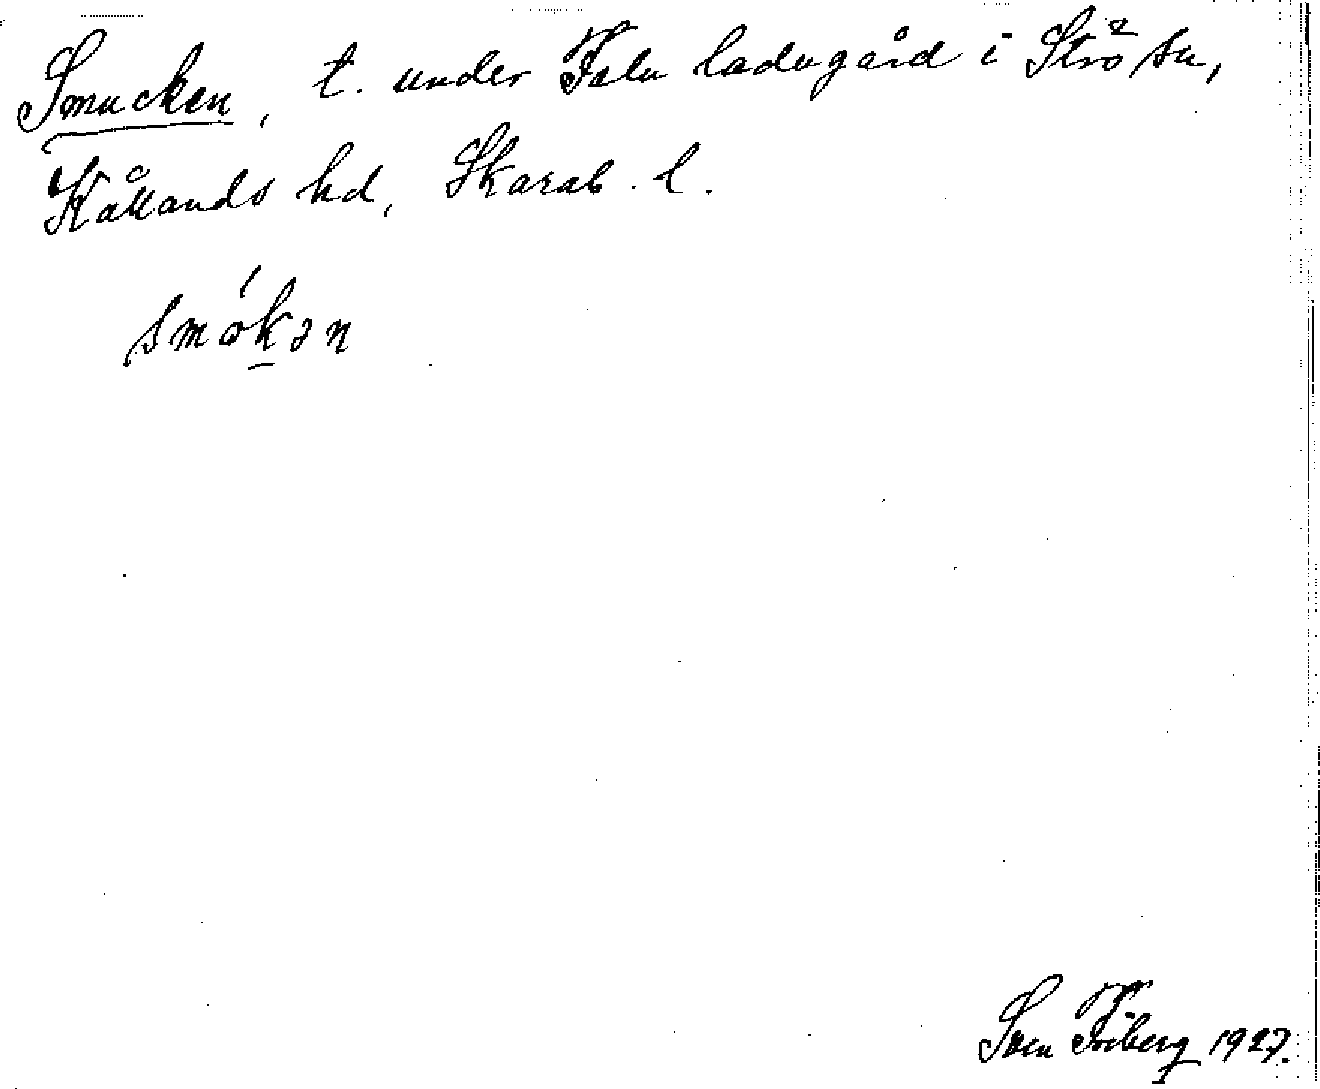 Smucken, t. under Falu ladugård i Strö sn,
Kållands hd, Skarab. l.
smókən
Sven Friberg 1927.